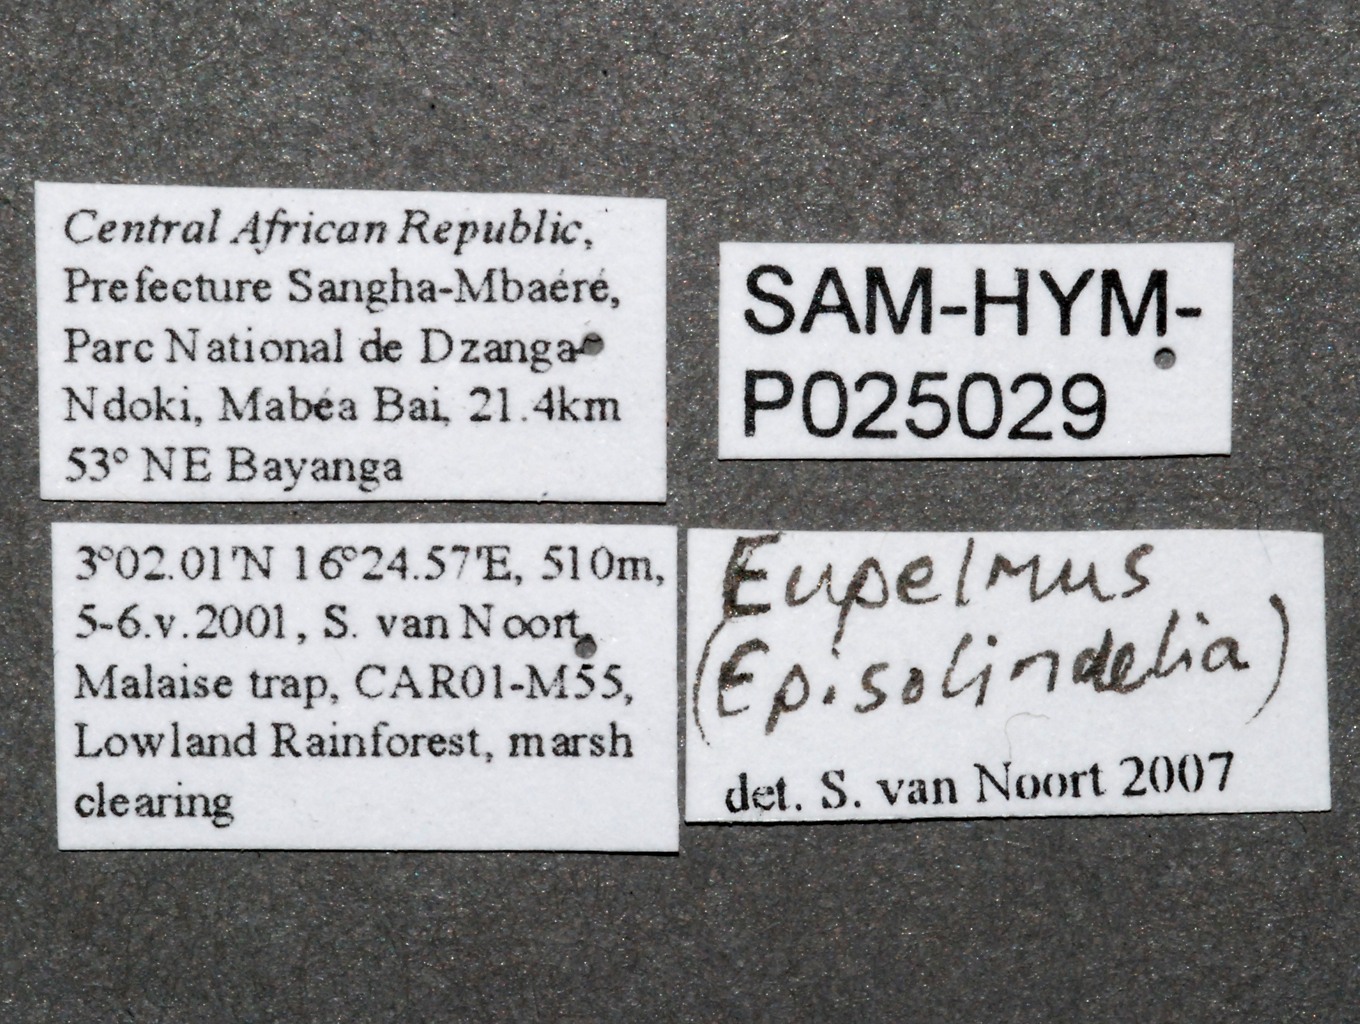 Central African Republic,
Prefecture Sangha-Mbaéré,
Parc National de Dzanga-
Ndoki, Mabéa Bai, 21.4km
53° NE Bayanga
3°02.01'N 16°24.57'E, 510m,
5-6.v.2001, S. van Noort,
Malaise trap, CAR01-M55,
Lowland Rainforest, marsh
clearing
SAM-HYM-
P025029
Eupelmus
(Episolindelia)
det. S. van Noort 2007